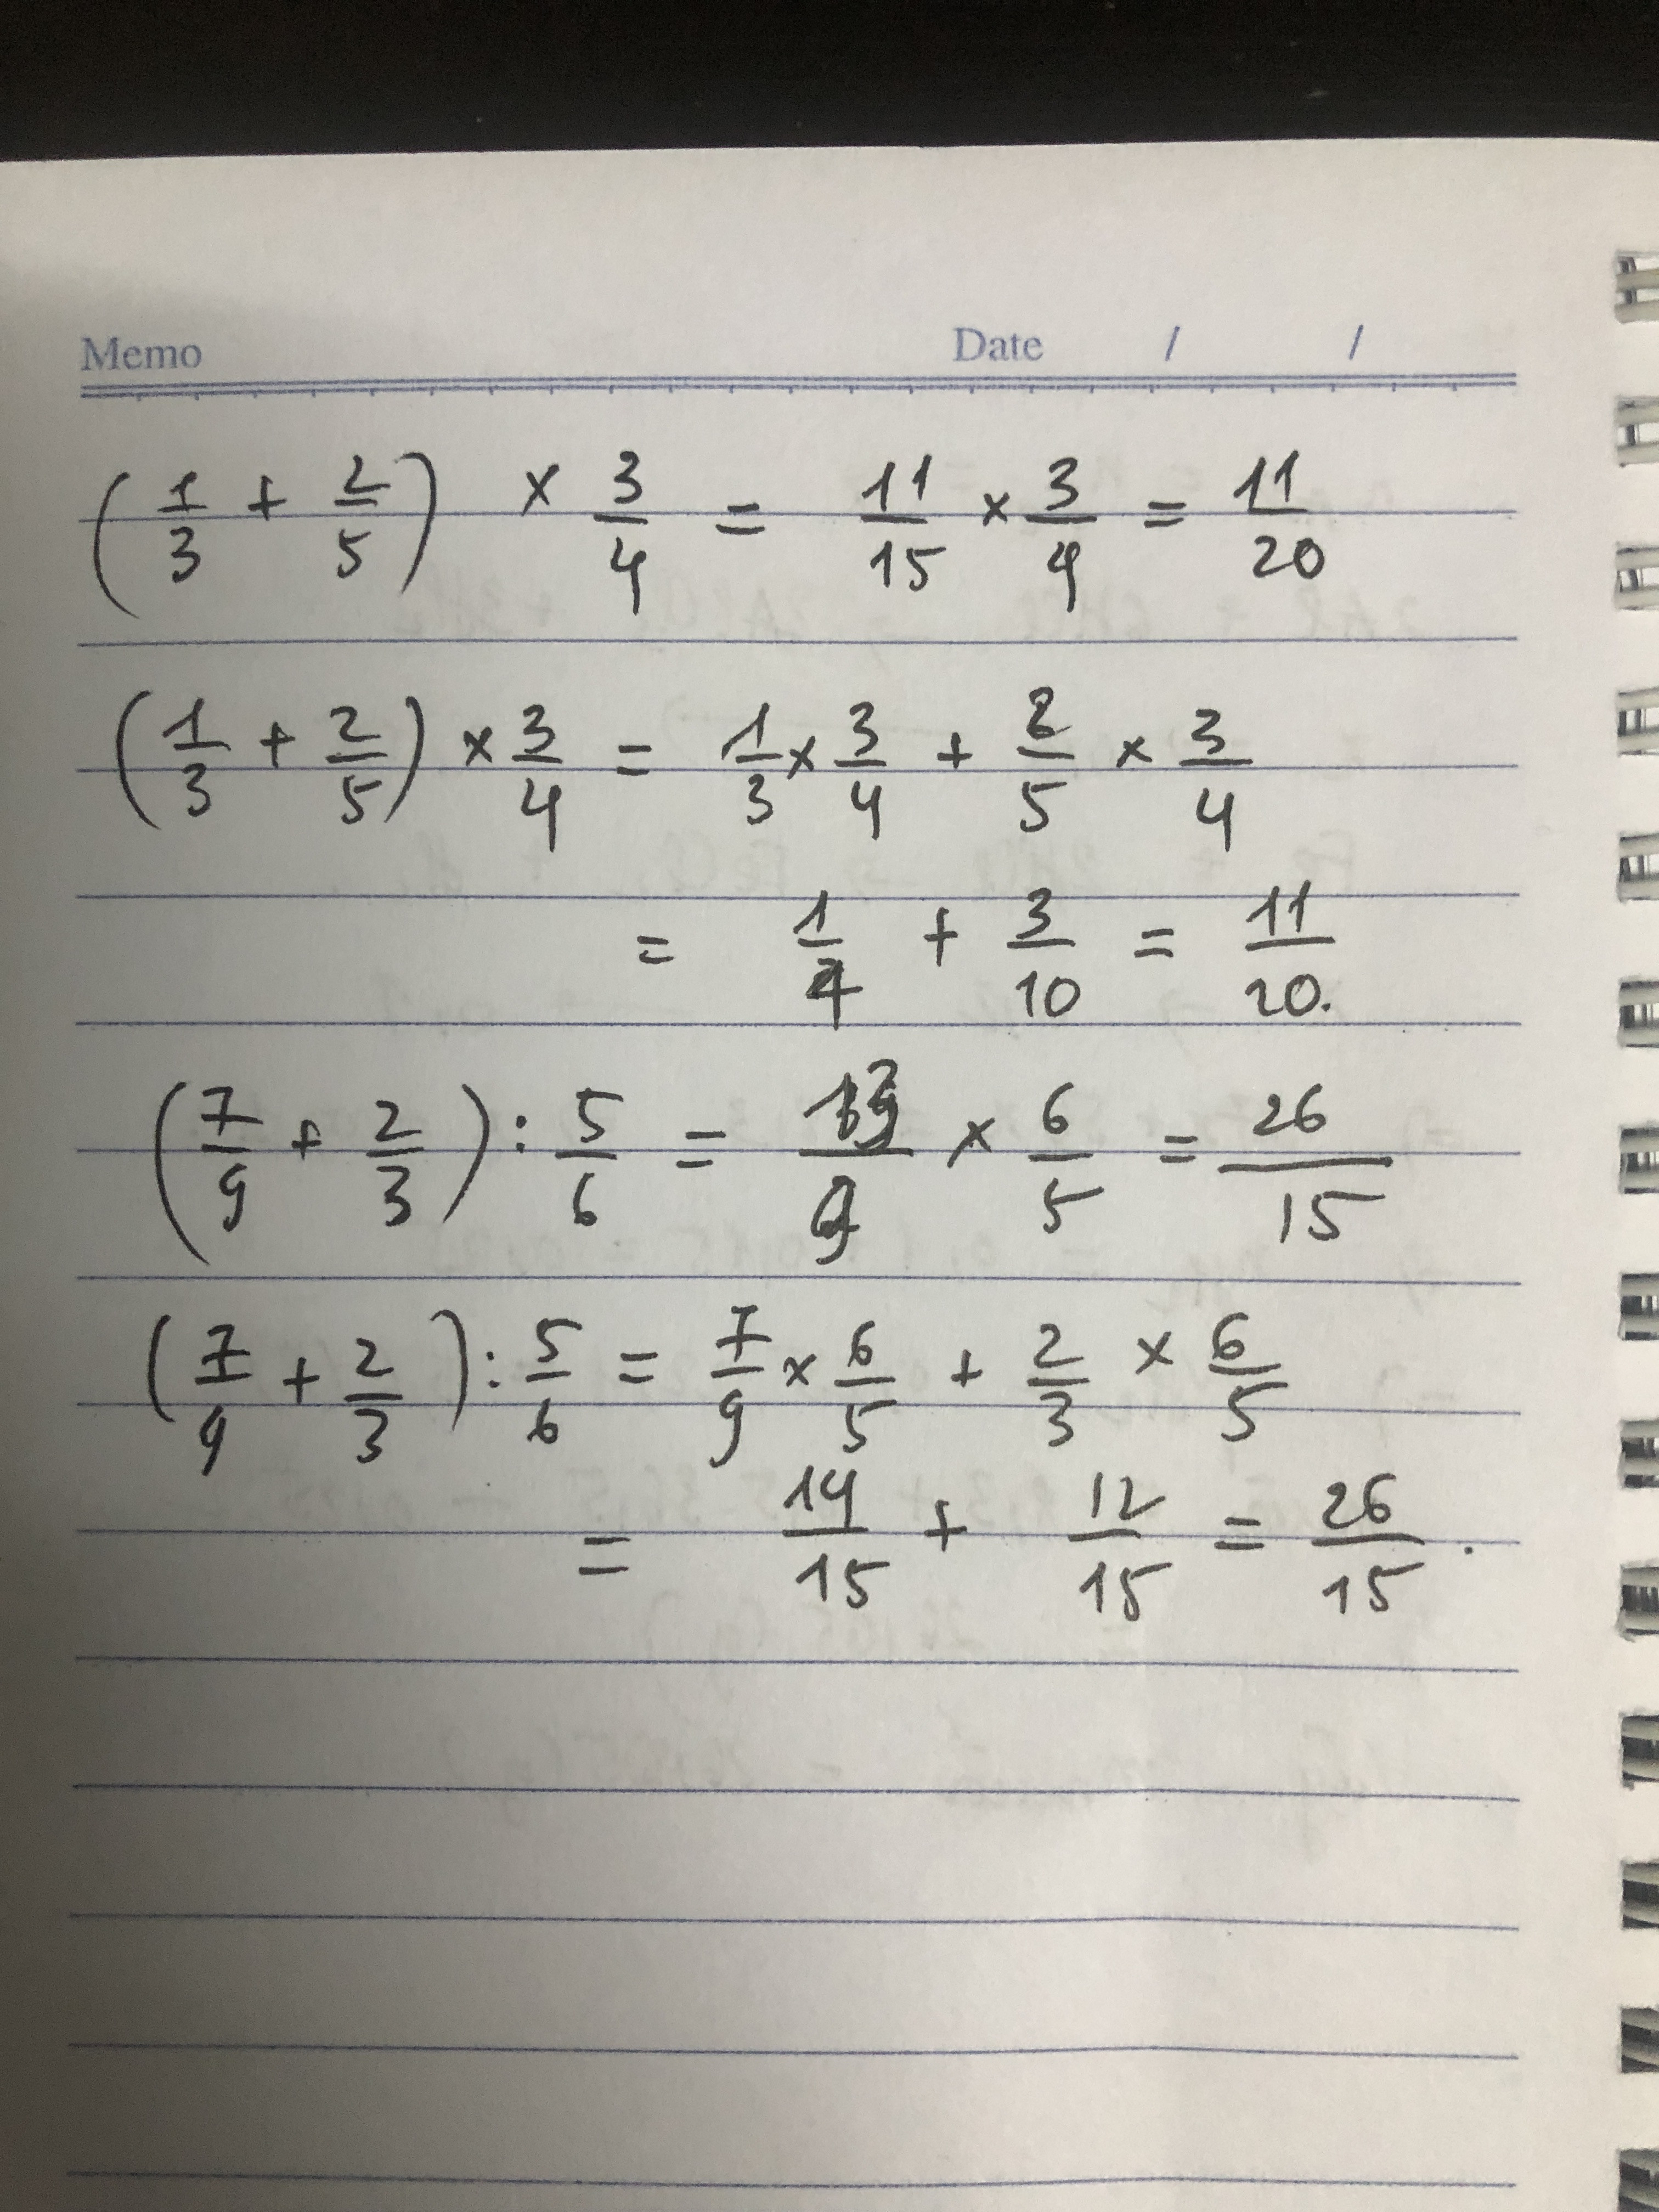 Memo Date / /
(1/3 + 2/5) × 3/4 = 11/15 × 3/4 = 11/20
(1/3 + 2/5) × 3/4 = 1/3 × 3/4 + 2/5 × 3/4
= 1/4 + 3/10 = 11/20.
(7/9 + 2/3) : 5/6 = 13/9 × 6/5 = 26/15
(7/9 + 2/3) : 5/6 = 7/9 × 6/5 + 2/3 × 6/5
= 14/15 + 12/15 = 26/15.